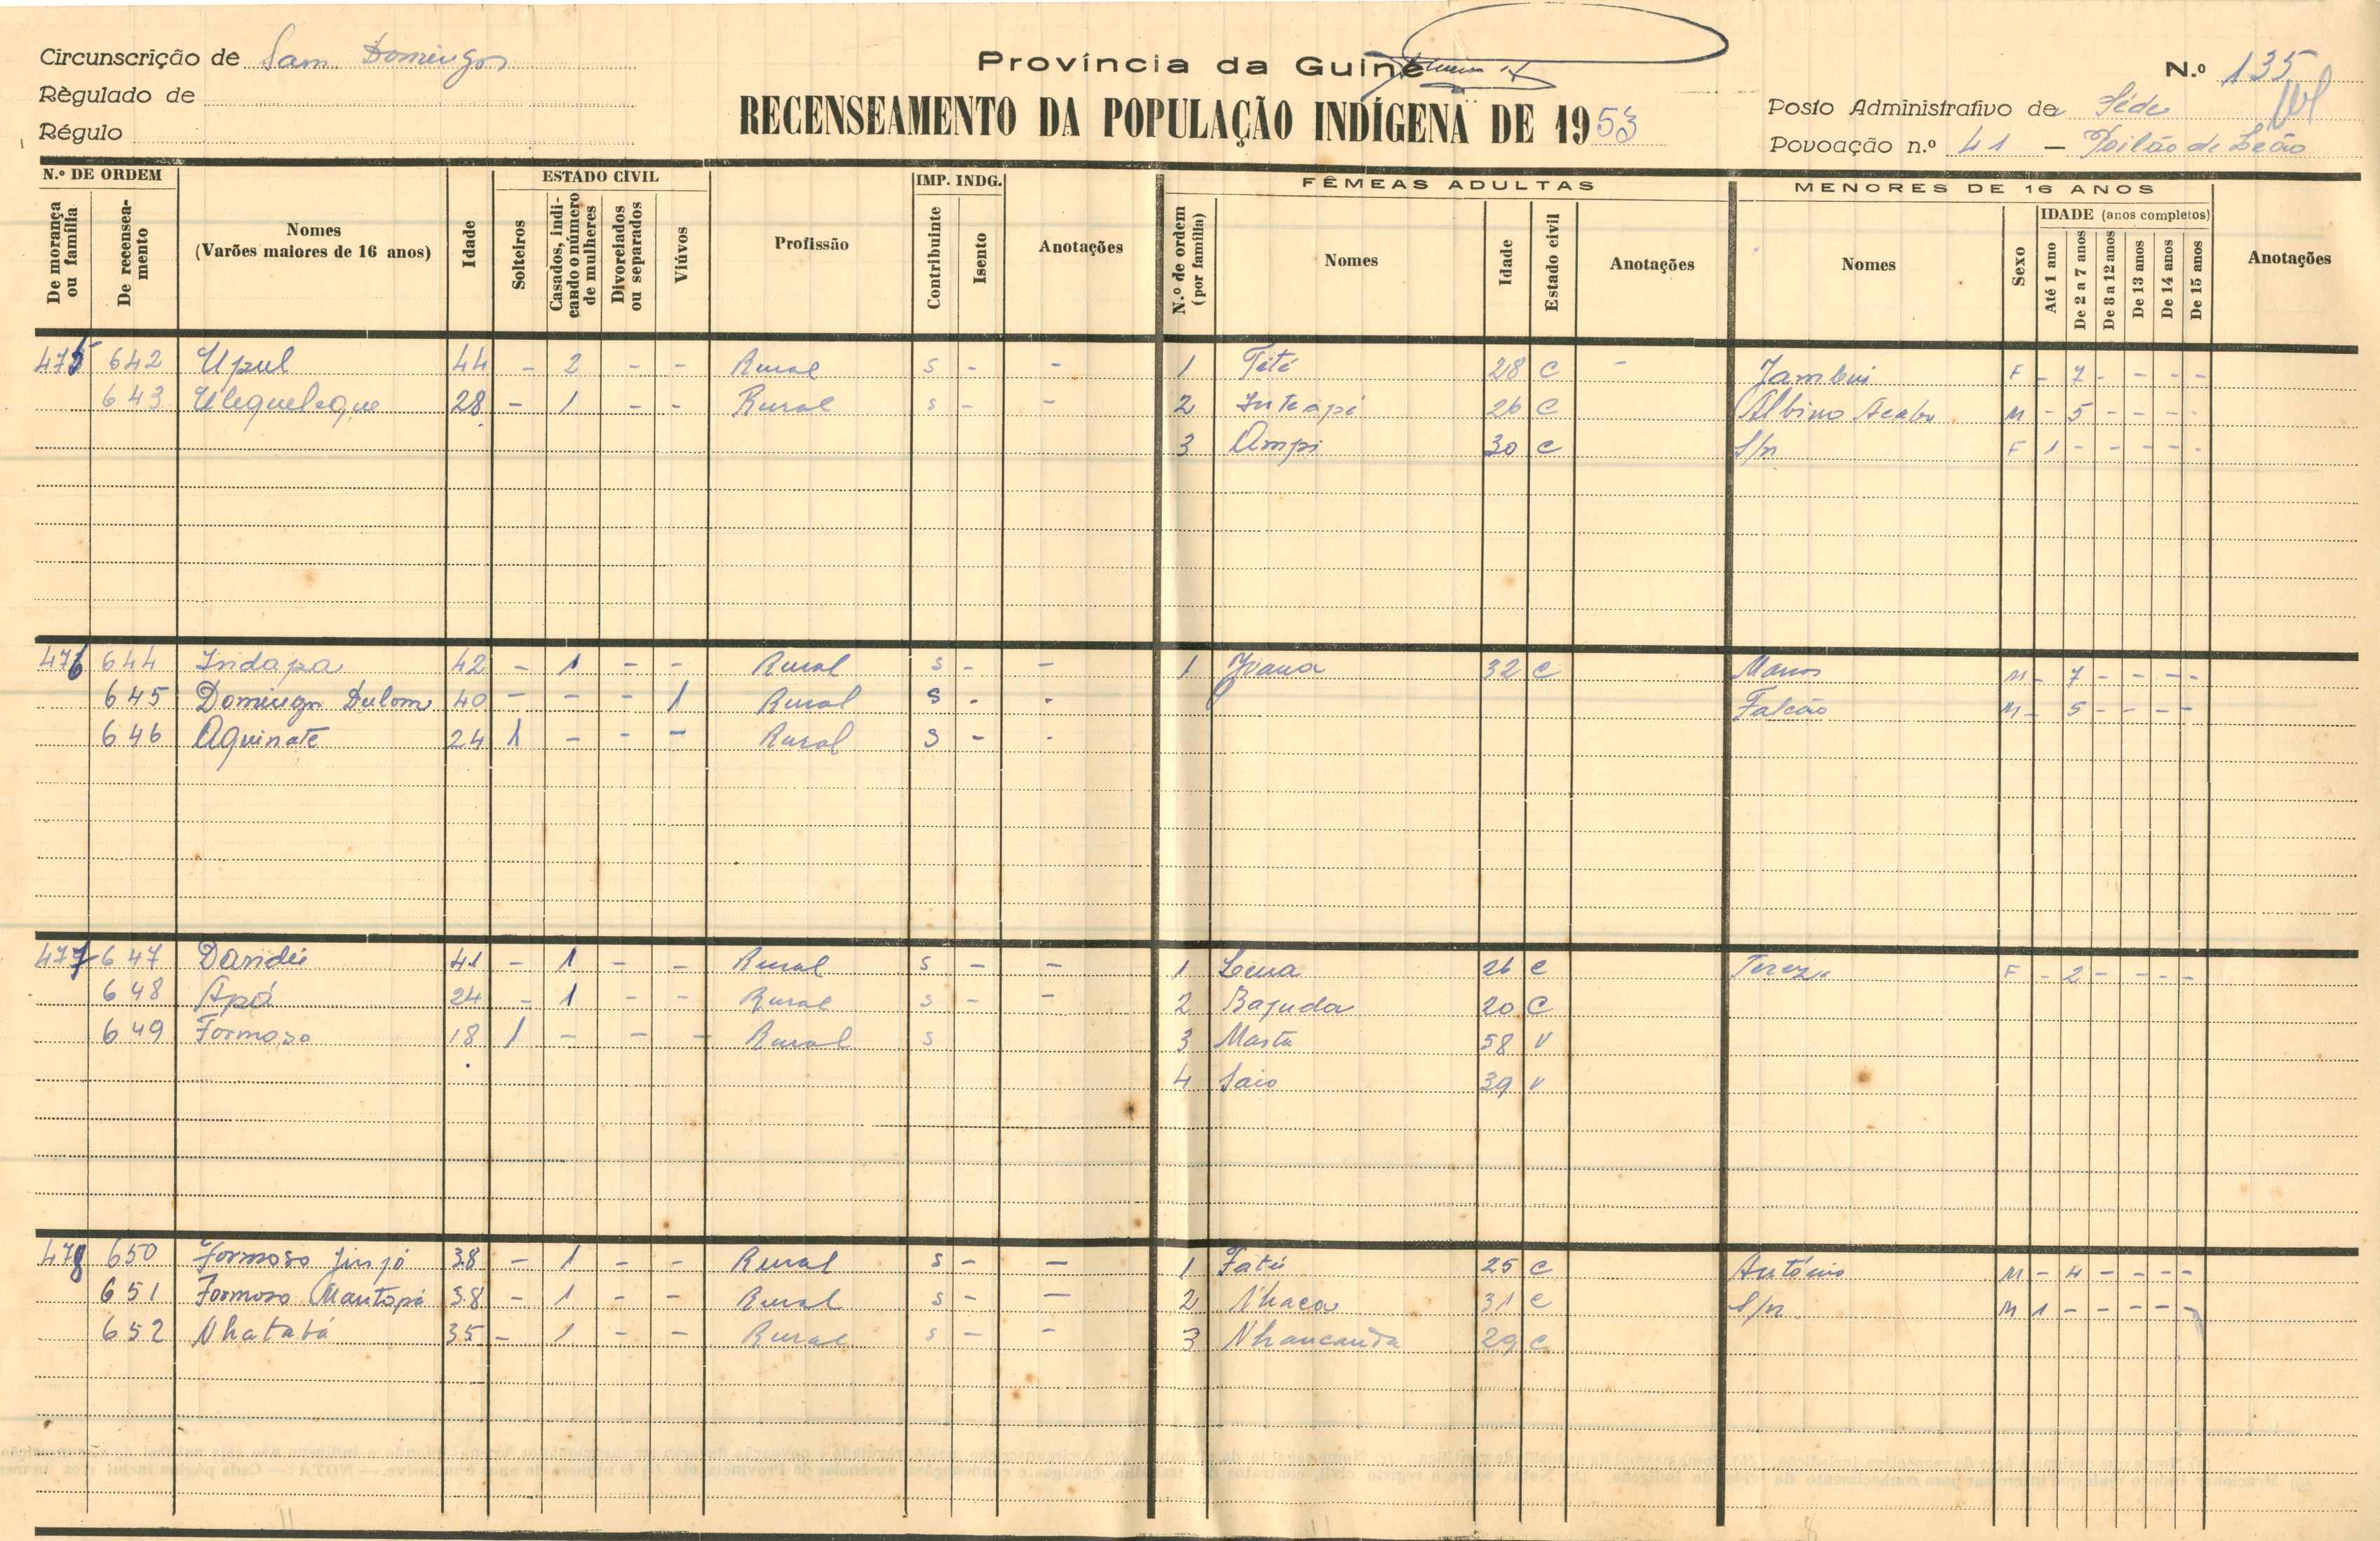 Circunscrição de Sam Domingos
Règulado de
Régulo
Província da Guiné
RECENSEAMENTO DA POPULAÇÃO INDÍGENA DE 1953
N.º 135
Posto Administrativo de Séde
Povoação n.º 41 – Poilão de Leão
N.º DE ORDEM
De morança ou família
De recenseamento
Nomes
(Varões maiores de 16 anos)
Idade
ESTADO CIVIL
Solteiros
Casados, indicando o número de mulheres
Divorciados ou separados
Viúvos
Profissão
IMP. INDG.
Contribuinte
Isento
Anotações
FÊMEAS ADULTAS
N.º de ordem (por família)
Nomes
Idade
Estado civil
Anotações
MENORES DE 16 ANOS
Nomes
Sexo
IDADE (anos completos)
Até 1 ano
De 2 a 7 anos
De 8 a 12 anos
De 13 anos
De 14 anos
De 15 anos
Anotações
475 642 Upul 44 - 2 - - Rural S - - 1 Teté 28 C - Jambui F - 7 - - - -
643 Uleguelegue 28 - 1 - - Rural S - - 2 Inteapé 26 C Albino M - 5 - - - -
3 Ampi 30 C S/n F 1 - - - - -
476 644 Indapa 42 - 1 - - Rural S - - 1 Joana 32 C M - 7 - - - -
645 Domingos Dulom 40 - - - 1 Rural S - - Falcão M - 5 - - - -
646 Aquinate 24 1 - - - Rural S - -
477 647 Dandú 41 - 1 - - Rural S - - 1 Lena 26 C Tereza F - 2 - - - -
648 Apá 24 - 1 - - Rural S - - 2 Bajuda 20 C
649 Formoso 18 1 - - - Rural S 3 Marta 58 V
4 Saio 39 V
478 650 Formoso Jinjó 38 - 1 - - Rural S - - 1 Fatú 25 C António M - 4 - - - -
651 Formoso Mantopé 38 - 1 - - Rural S - - 2 Nhaca 31 C S/n. M 1 - - - - -
652 Nhatabá 35 - 1 - - Rural S - - 3 Nhancanda 29 C